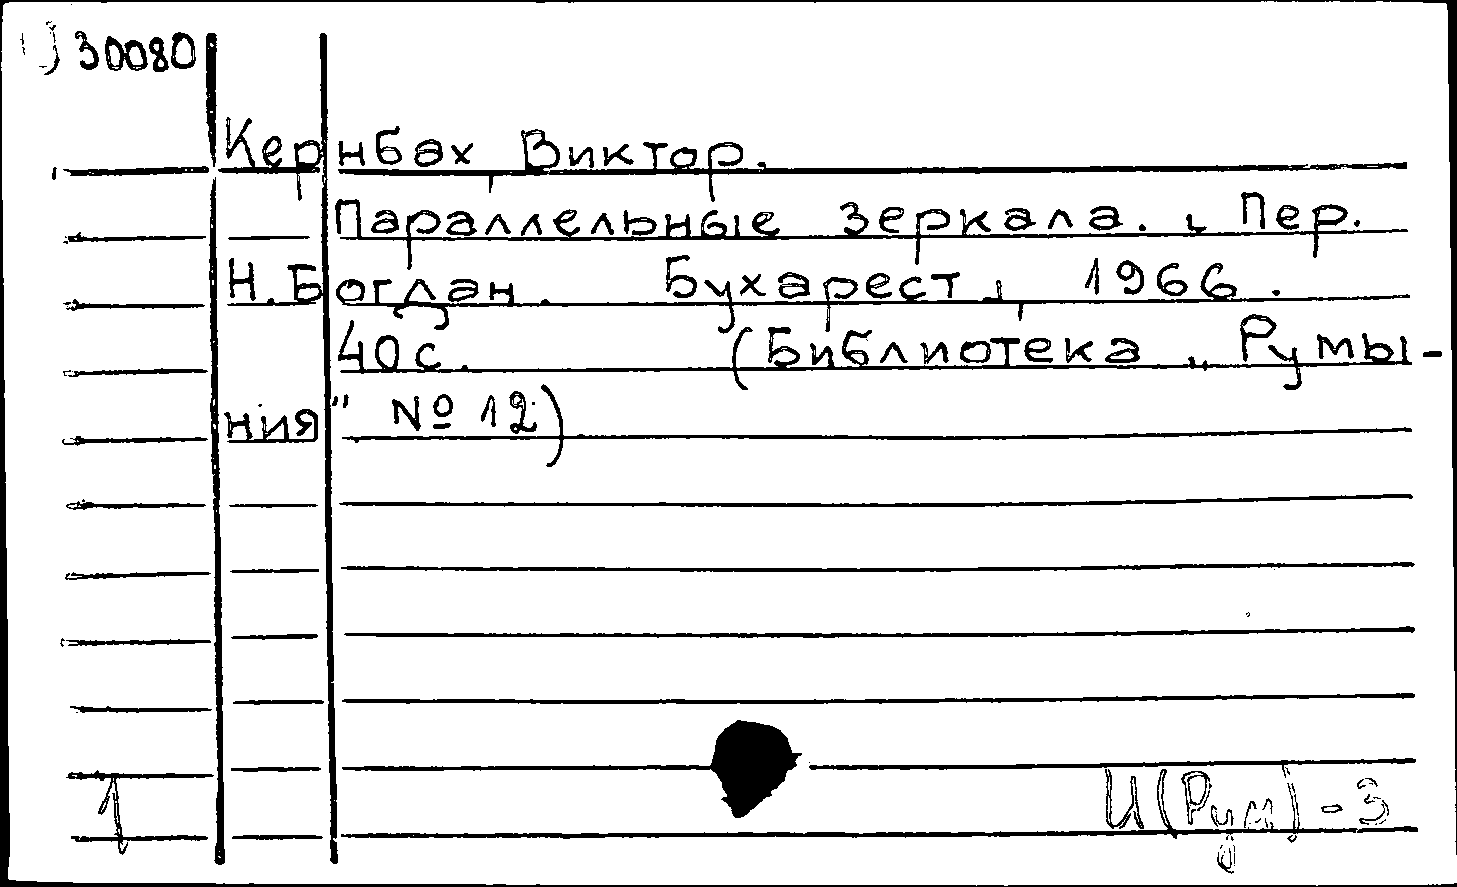 30080
Кернбах, Виктор.
Параллельные зеркала. Пер.
Н. Богдан. Бухарест, 1966.
40с. (Библиотека „Румы-
ния" № 12)
1
И(Рум)-3